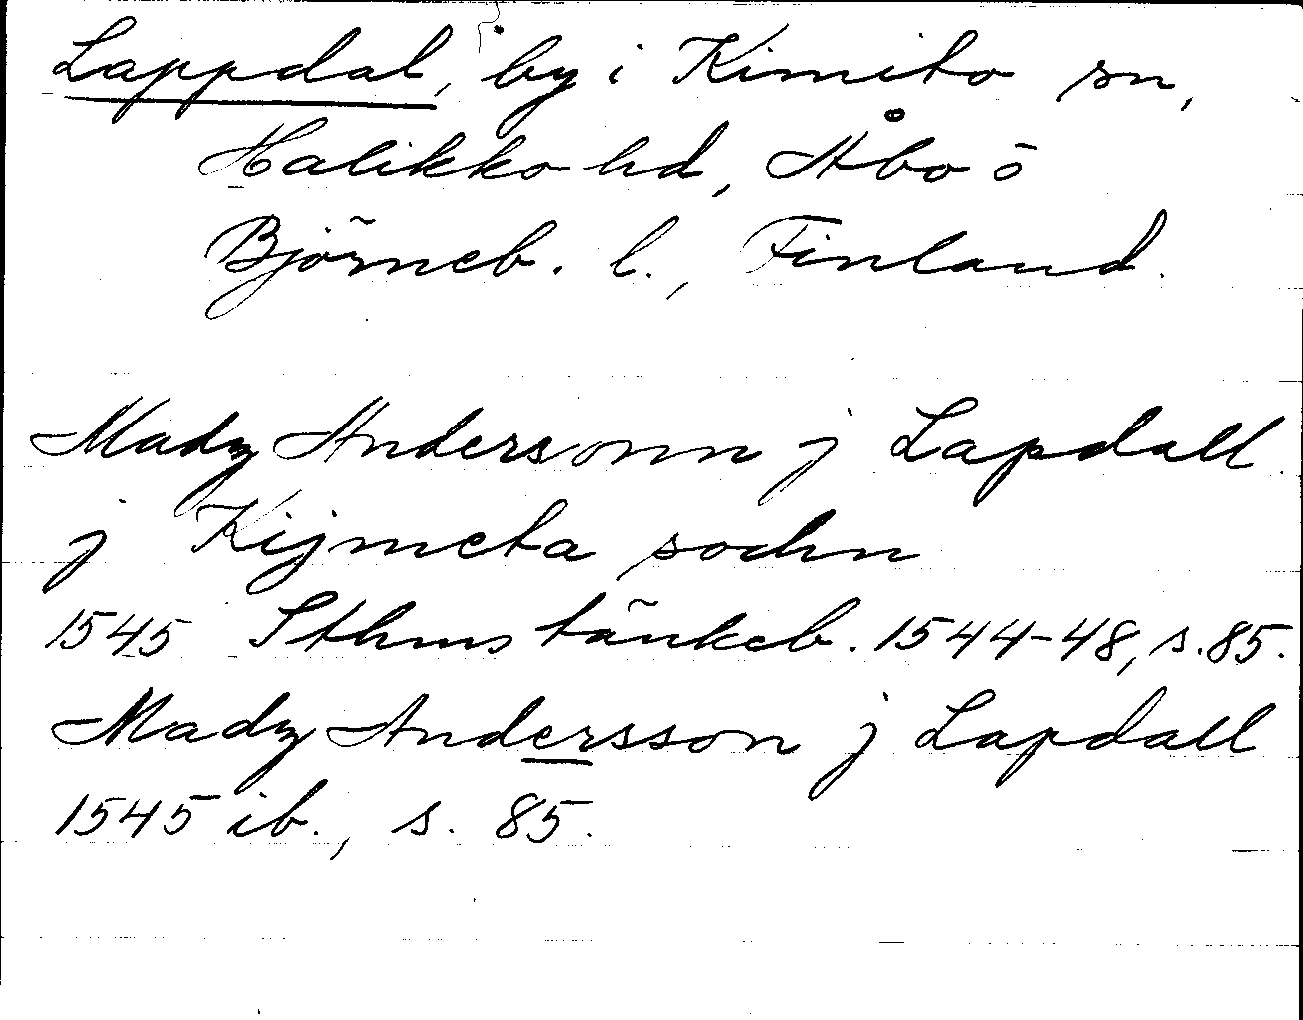 Lappdal, by i Kimito sn,
Halikko hd, Åbo o
Björneb. l., Finland.
Madz Andersonn j Lapdall
j Kijmeta sochn
1545 Sthms tänkeb. 1544-48, s. 85.
Madz Andersson j Lapdall
1545 ib., s. 85.